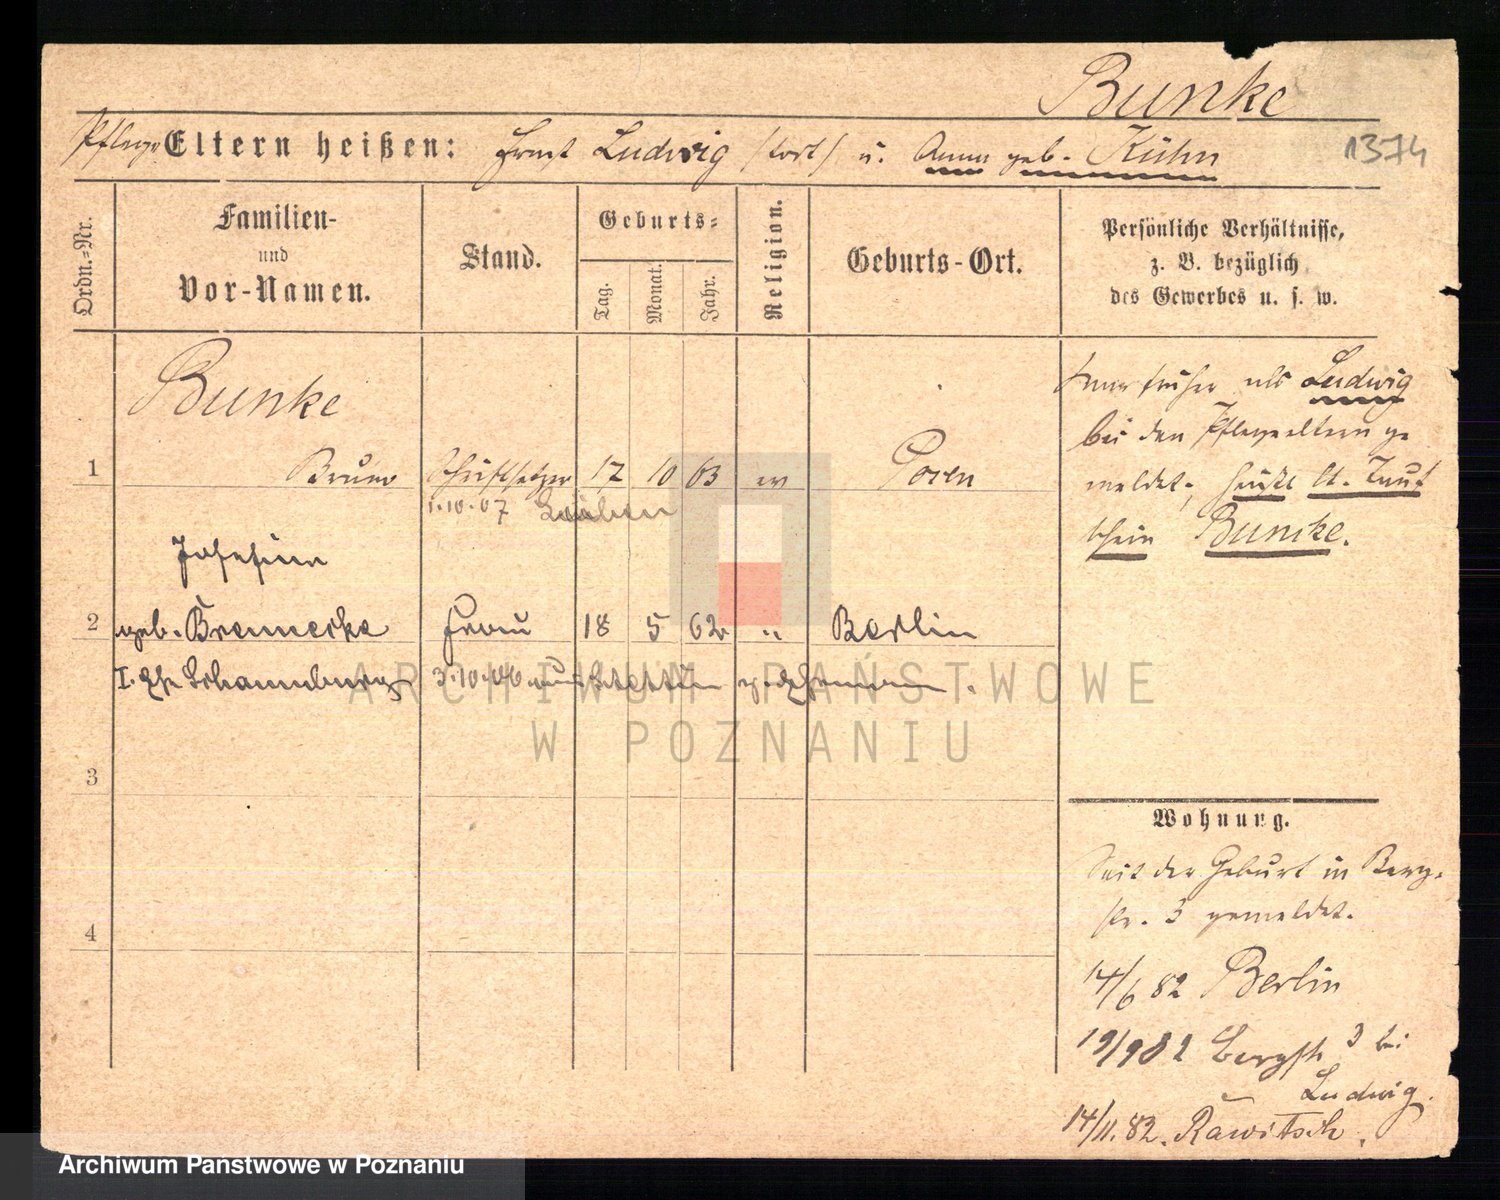 Bunke
1374
Pflege Eltern heißen: Ernst Ludwig (tort) u. Anna geb. Kühn
Ordn.=Nr.
Familien-
und
Vor-Namen.
Stand.
Geburts=
Tag.
Monat.
Jahr.
Religion.
Geburts-Ort.
Persönliche Verhältnisse,
z. B. bezüglich
des Gewerbes u. s. w.
Bunke
1 Bruno Schriftsetzer 17 10 63 ev Posen
1.10.07
Josefine
2 geb. Brennecke Frau 18 5 62 " Berlin
I. 3.10.06 aus Stettin
3
4
früher als Ludwig
bei den Pflegeeltern ge
meldet, heißt lt. Tauf
schein Buncke.
Wohnung.
Seit der Geburt in Berg-
str. 3 gemeldet.
14/6 82 Berlin
19/9 82 Bergstr 3 bei
Ludwig.
14/11.82. Rawitsch.
ARCHIWUM PAŃSTWOWE
W POZNANIU
Archiwum Państwowe w Poznaniu